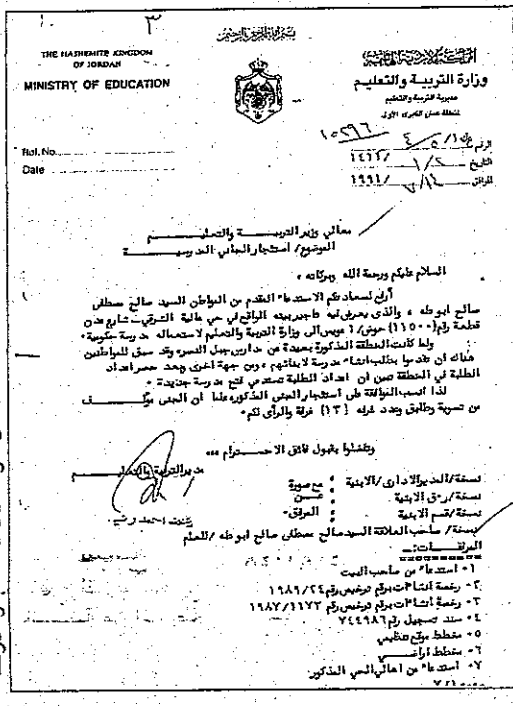 ٣
بسم الله الرحمن الرحيم
THE HASHEMITE KINGDOM
OF JORDAN
MINISTRY OF EDUCATION
المملكة الأردنية الهاشمية
وزارة التربية والتعليم
مديرية التربية والتعليم
لمنطقة عمان الكبرى الأولى
Ref. No.
Date
الرقم ١٠٣٩٦
التاريخ / ١٤١٢
الموافق ١٤/٧/١٩٩١
معالي وزير التربية والتعليم
الموضوع/ استئجار المباني المدرسية
السلام عليكم ورحمة الله وبركاته ،
أرفع لسعادتكم الاستدعاء المقدم من المواطن السيد صالح مصطفى
صالح ابو طه ، والذي يعرض فيه تاجير بيته الواقع في حي عالية الشرقي - شارع عدن
قطعة رقم (١١٥٠٠) حوض/ ١ مويس الى وزارة التربية والتعليم لاستعماله مدرسة حكومية.
ولما كانت المنطقة المذكورة بعيدة عن مدارس جبل النصر وقد سبق للمواطنين
هناك ان تقدموا بطلب انشاء مدرسة لابنائهم ، ومن جهة اخرى وبعد حصر اعداد
الطلبة في المنطقة تبين ان اعداد الطلبة تستدعي فتح مدرسة جديدة .
لذا انسب الموافقة على استئجار المبنى المذكور، علما ان المبنى مؤلف
من تسوية وطابق وعدد غرفه (١٣) غرفة والرأي لكم.
وتفضلوا بقبول فائق الاحترام ،،،
مدير التربية والتعليم
نسخة/المدير الاداري/الابنية ، مع صورة
نسخة/ر.ق الابنية ، عن
نسخة/قسم الابنية ، المرفق.
نسخة/ صاحب العلاقة السيد صالح مصطفى صالح ابو طه /للعلم
المرفقات:ــ
١- استدعاء من صاحب البيت
٢- رخصة انشاءات برقم ترخيص رقم ١٩٨٩/٢٤
٣- رخصة انشاءات برقم ترخيص رقم ١٩٨٧/١١٧٢
٤- سند تسجيل رقم ٧٤٤٩٨٦
٥- مخطط موقع تنظيمي
٦- مخطط اراضي
٧- استدعاء من اهالي الحي المذكور.